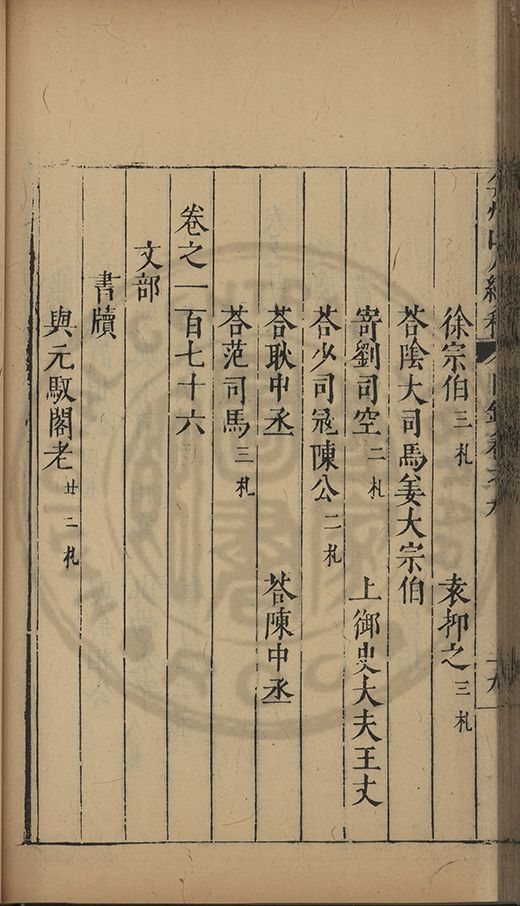 徐宗伯三札 袁抑之三札
荅陰大司馬姜大宗伯
寄劉司空二札 上御史大夫王丈
荅少司寇陳公二札
荅耿中丞 荅陳中丞
荅范司馬三札
卷之一百七十六
文部
書牘
與元馭閣老廿二札